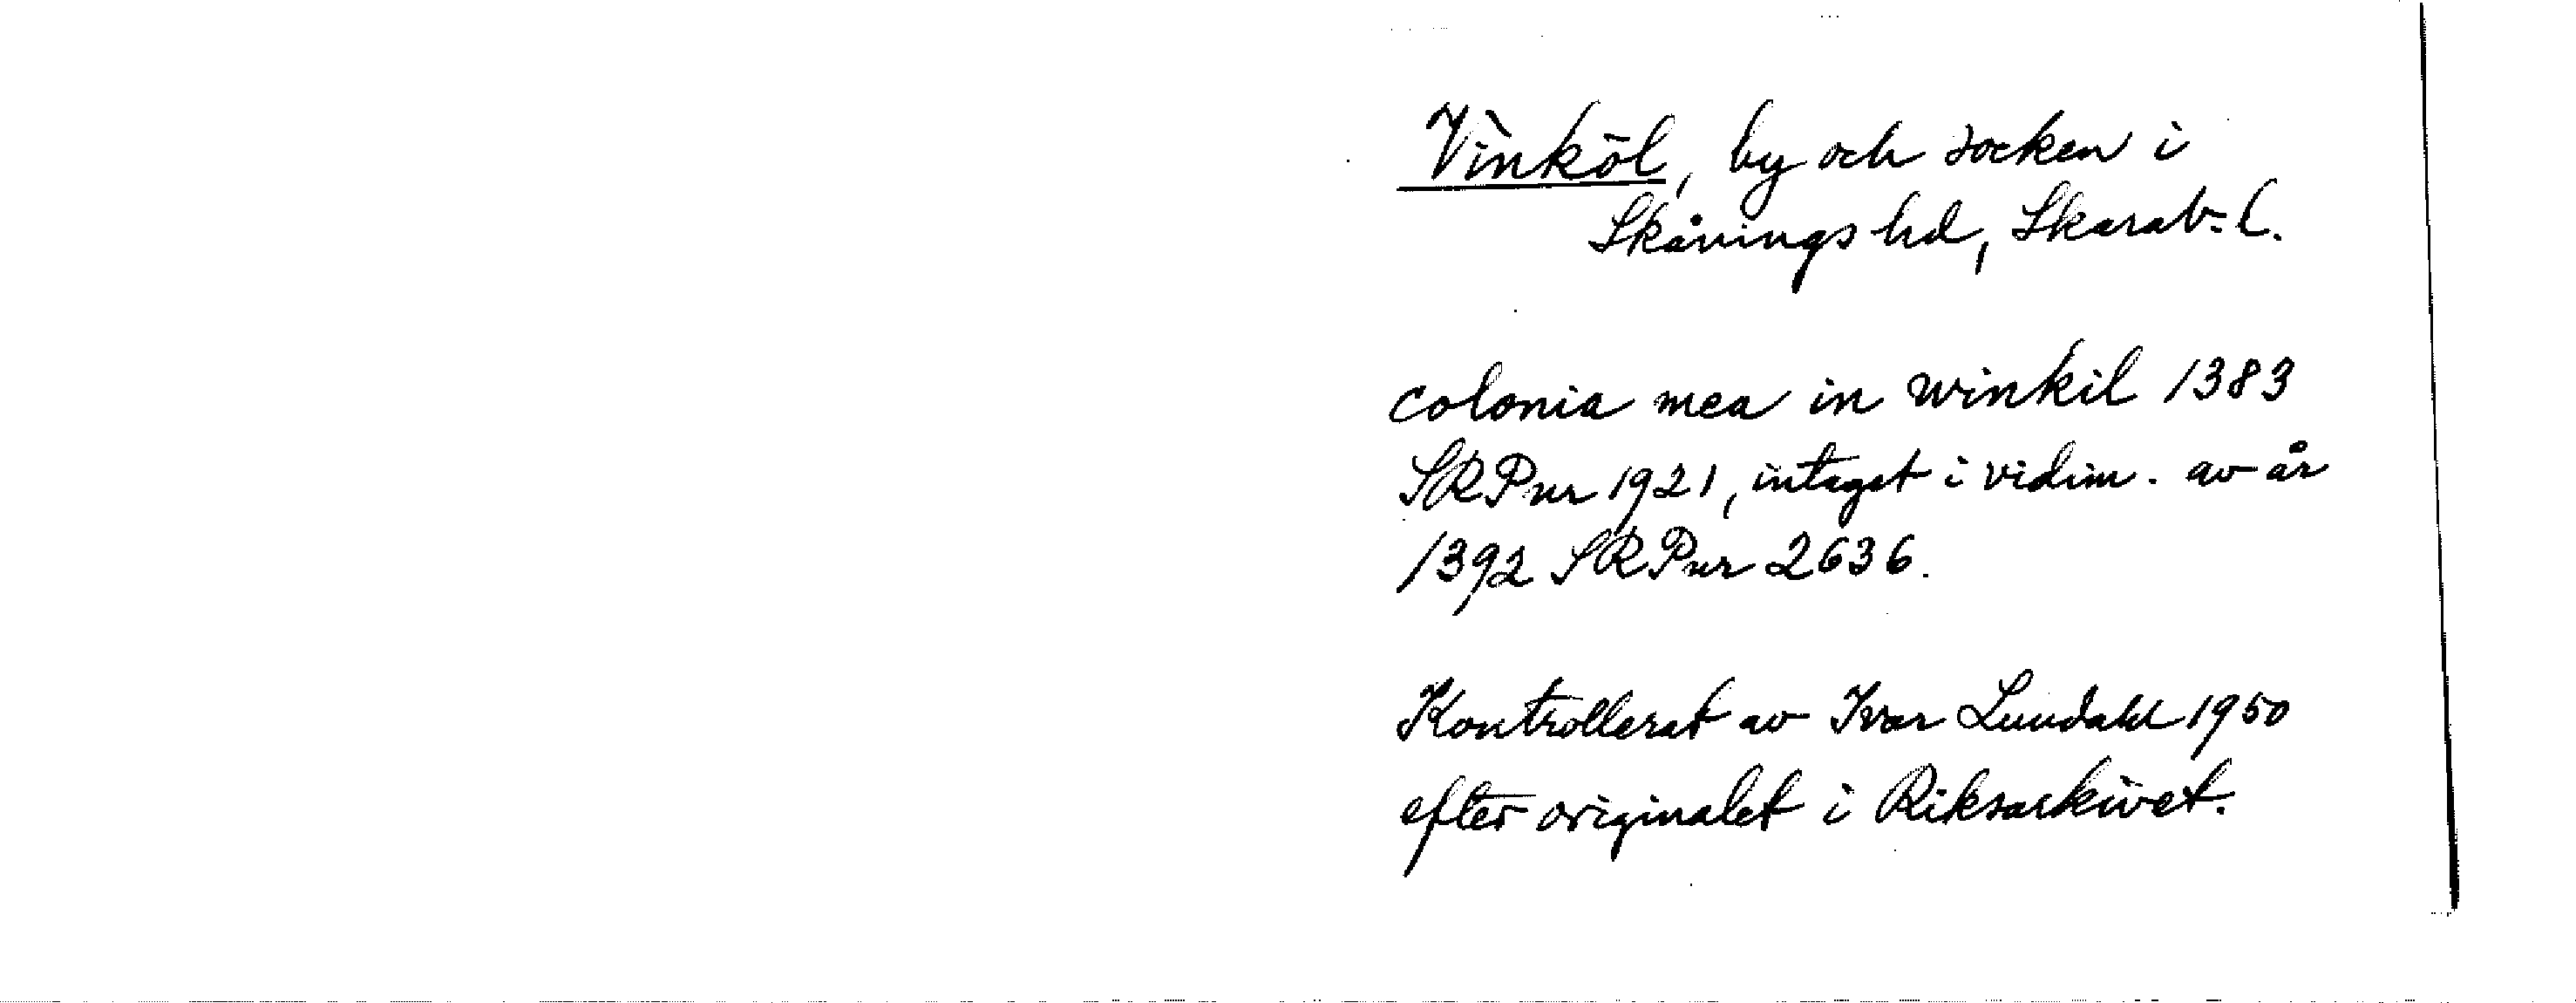 Vinköl, by och socken i
Skånings hd, Skarab. l.
colonia mea in winkil 1383
SRP nr 1921, intaget i vidim. av år
1392 SRP nr 2636.
Kontrollerat av Ivar Lundahl 1950
efter originalet i Riksarkivet.